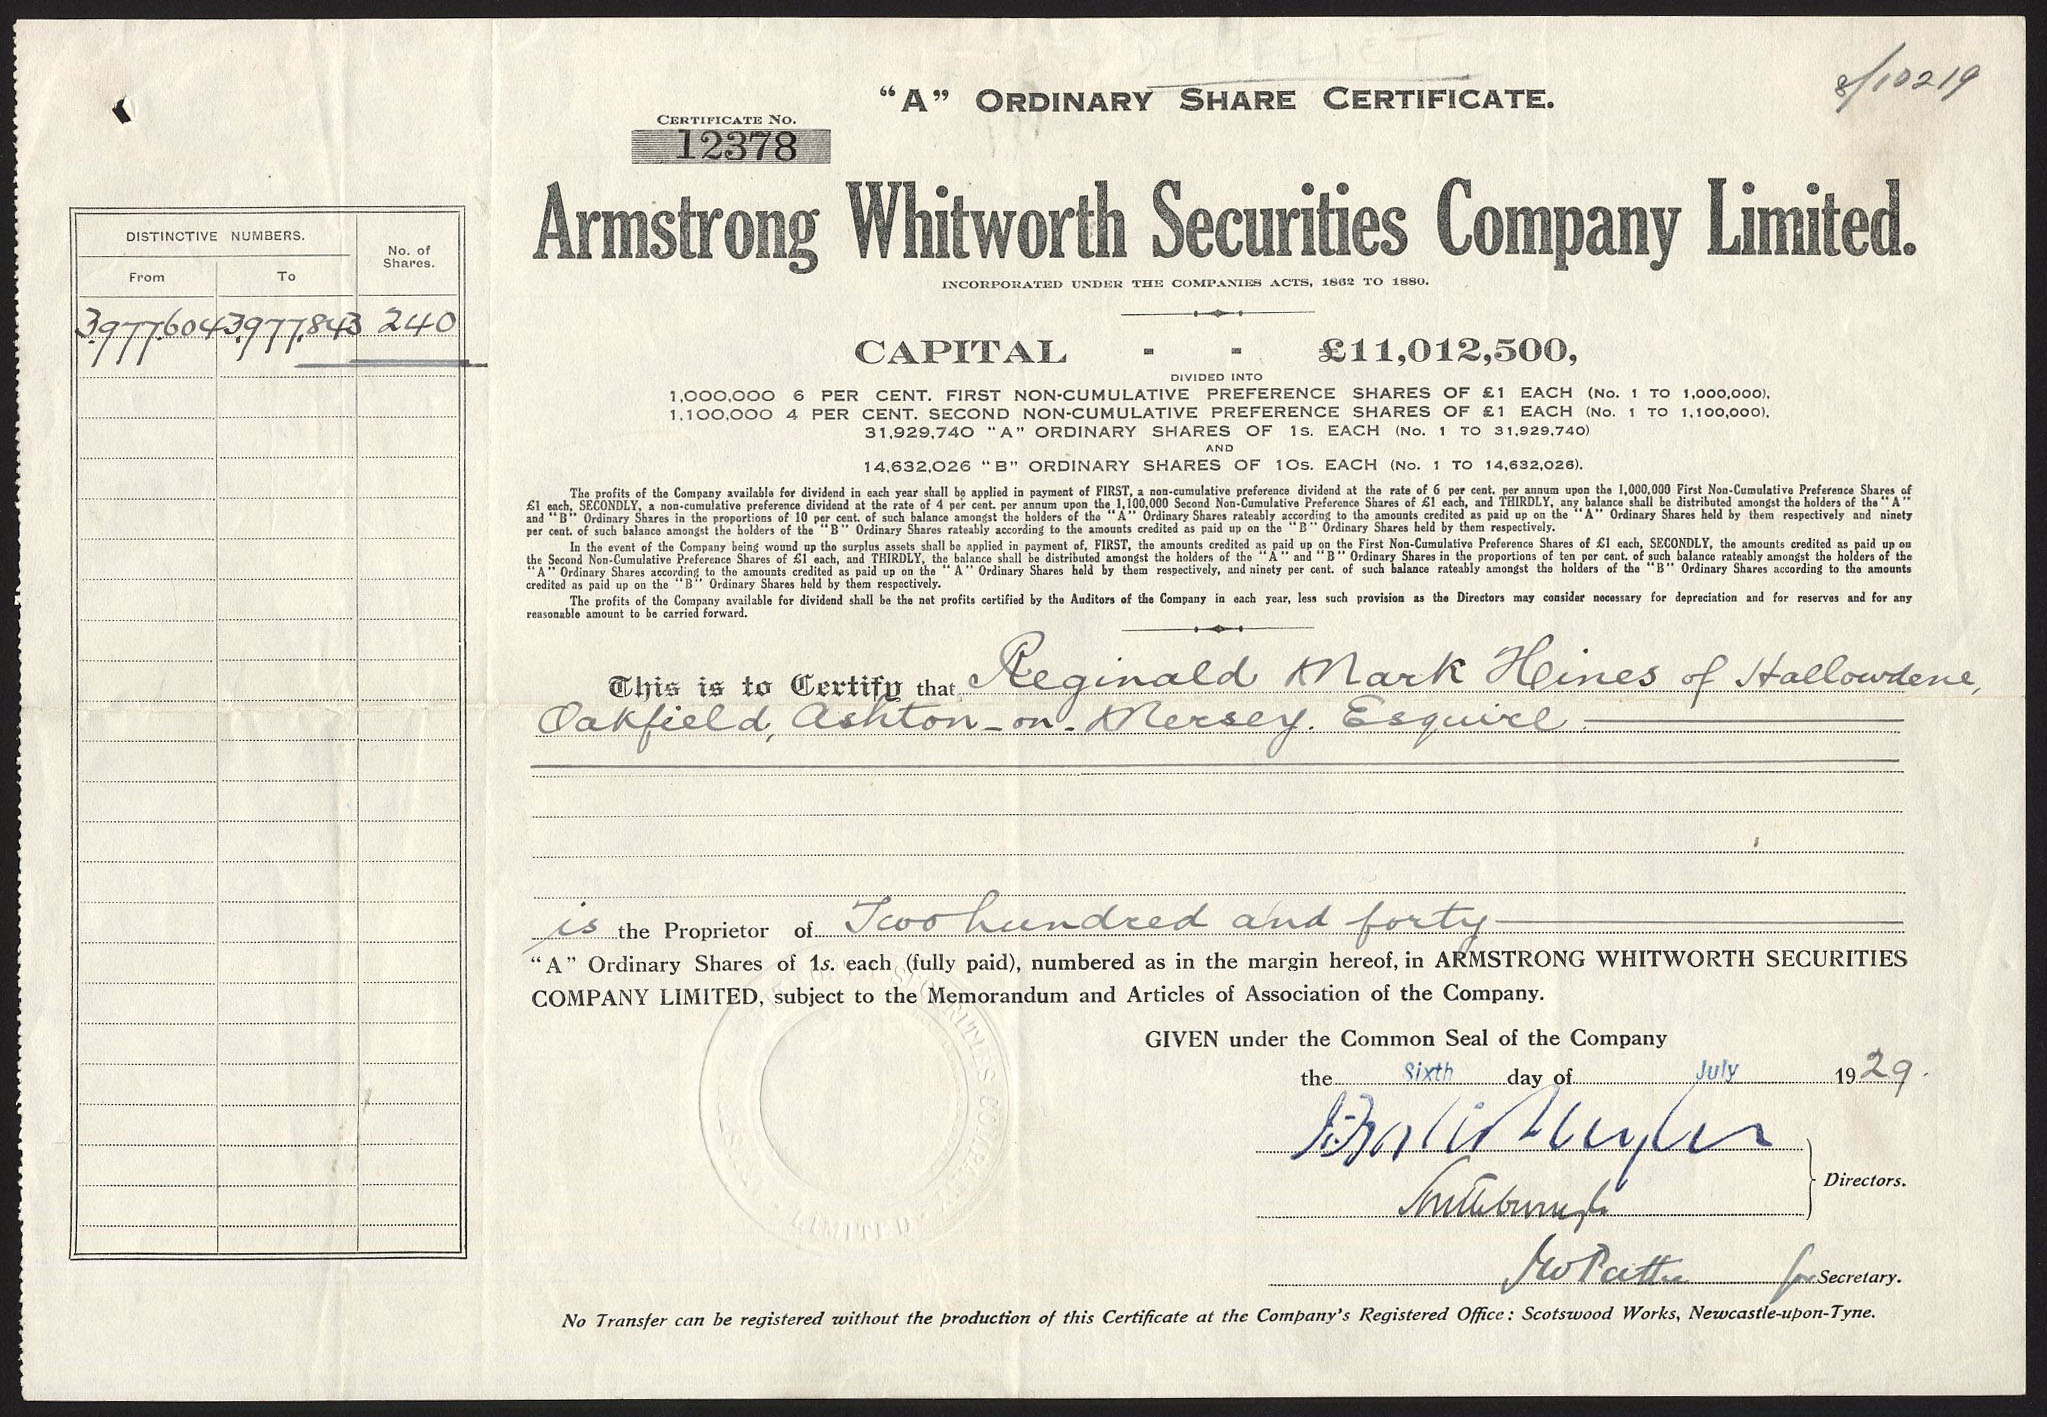 8/10219
"A" ORDINARY SHARE CERTIFICATE.
CERTIFICATE No.
12378
Armstrong Whitworth Securities Company Limited.
INCORPORATED UNDER THE COMPANIES ACTS, 1862 TO 1880.
DISTINCTIVE NUMBERS.
No. of Shares.
From To
3977604 3977843 240
CAPITAL - - £11,012,500,
DIVIDED INTO
1,000,000 6 PER CENT. FIRST NON-CUMULATIVE PREFERENCE SHARES OF £1 EACH (No. 1 TO 1,000,000),
1,100,000 4 PER CENT. SECOND NON-CUMULATIVE PREFERENCE SHARES OF £1 EACH (No. 1 TO 1,100,000),
31,929,740 "A" ORDINARY SHARES OF 1s. EACH (No. 1 TO 31,929,740)
AND
14,632,026 "B" ORDINARY SHARES OF 10s. EACH (No. 1 TO 14,632,026).
The profits of the Company available for dividend in each year shall be applied in payment of FIRST, a non-cumulative preference dividend at the rate of 6 per cent. per annum upon the 1,000,000 First Non-Cumulative Preference Shares of
£1 each, SECONDLY, a non-cumulative preference dividend at the rate of 4 per cent. per annum upon the 1,100,000 Second Non-Cumulative Preference Shares of £1 each, and THIRDLY, any balance shall be distributed amongst the holders of the "A"
and "B" Ordinary Shares in the proportions of 10 per cent. of such balance amongst the holders of the "A" Ordinary Shares rateably according to the amounts credited as paid up on the "A" Ordinary Shares held by them respectively and ninety
per cent. of such balance amongst the holders of the "B" Ordinary Shares rateably according to the amounts credited as paid up on the "B" Ordinary Shares held by them respectively.
In the event of the Company being wound up the surplus assets shall be applied in payment of, FIRST, the amounts credited as paid up on the First Non-Cumulative Preference Shares of £1 each, SECONDLY, the amounts credited as paid up on
the Second Non-Cumulative Preference Shares of £1 each, and THIRDLY, the balance shall be distributed amongst the holders of the "A" and "B" Ordinary Shares in the proportions of ten per cent. of such balance rateably amongst the holders of the
"A" Ordinary Shares according to the amounts credited as paid up on the "A" Ordinary Shares held by them respectively, and ninety per cent. of such balance rateably amongst the holders of the "B" Ordinary Shares according to the amounts
credited as paid up on the "B" Ordinary Shares held by them respectively.
The profits of the Company available for dividend shall be the net profits certified by the Auditors of the Company in each year, less such provision as the Directors may consider necessary for depreciation and for reserves and for any
reasonable amount to be carried forward.
This is to Certify that Reginald Mark Hines of Hallowdene,
Oakfield, Ashton-on-Mersey. Esquire
is the Proprietor of Two hundred and forty
"A" Ordinary Shares of 1s. each (fully paid), numbered as in the margin hereof, in ARMSTRONG WHITWORTH SECURITIES
COMPANY LIMITED, subject to the Memorandum and Articles of Association of the Company.
GIVEN under the Common Seal of the Company
the Sixth day of July 1929.
Southborough
Directors.
for Secretary.
LIMITED
No Transfer can be registered without the production of this Certificate at the Company's Registered Office: Scotswood Works, Newcastle-upon-Tyne.